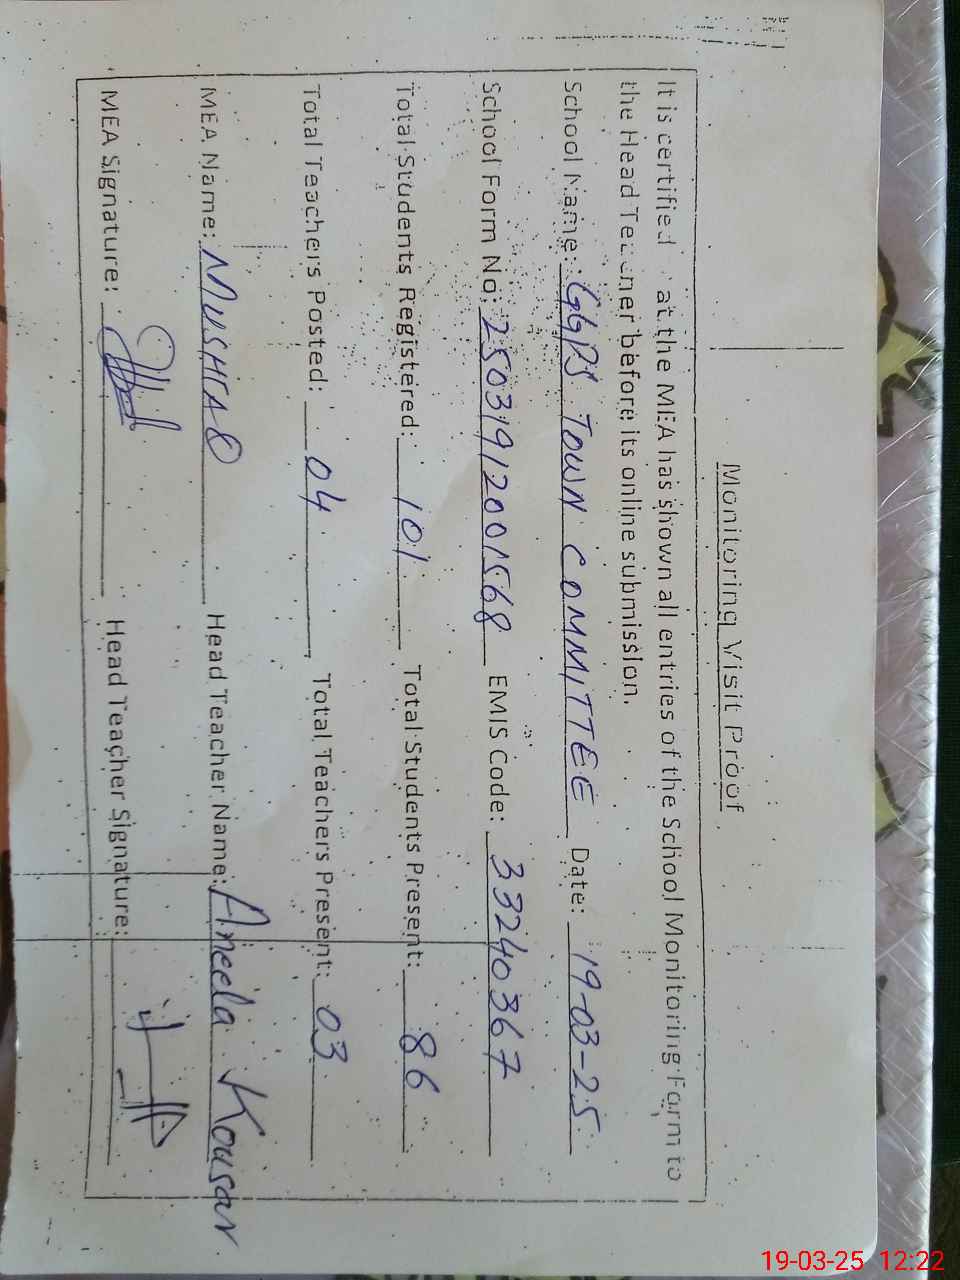 Monitoring Visit Proof
It is certified at the MEA has shown all entries of the School Monitoring Form to
the Head Teacher before its online submission.
School Name: GGPS TOWN COMMITTEE Date: 19-03-25
School Form No: 25031912001568 EMIS Code: 33240367
Total Students Registered: 101 Total Students Present: 86
Total Teachers Posted: 04 Total Teachers Present: 03
MEA Name: MUSHTAQ Head Teacher Name: Aneela Kousar
MEA Signature: Head Teacher Signature:
19-03-25 12:22